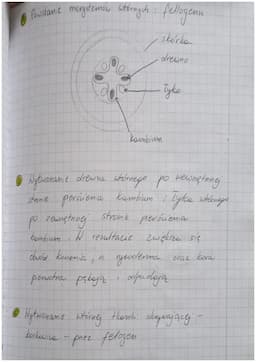 Powstanie merystemów wtórnych: fellogenu
skórka
drewno
łyko
kambium
Wytwarzanie drewna wtórnego po wewnętrznej
stronie pierścienia kambium i łyka wtórnego
po zewnętrznej stronie pierścienia
kambium. W rezultacie zwiększa się
obwód korzenia, a ryzoderma oraz kora
pierwotna pękają i odpadają
Wytwarzanie wtórnej tkanki okrywającej -
korkowica - przez fellogen